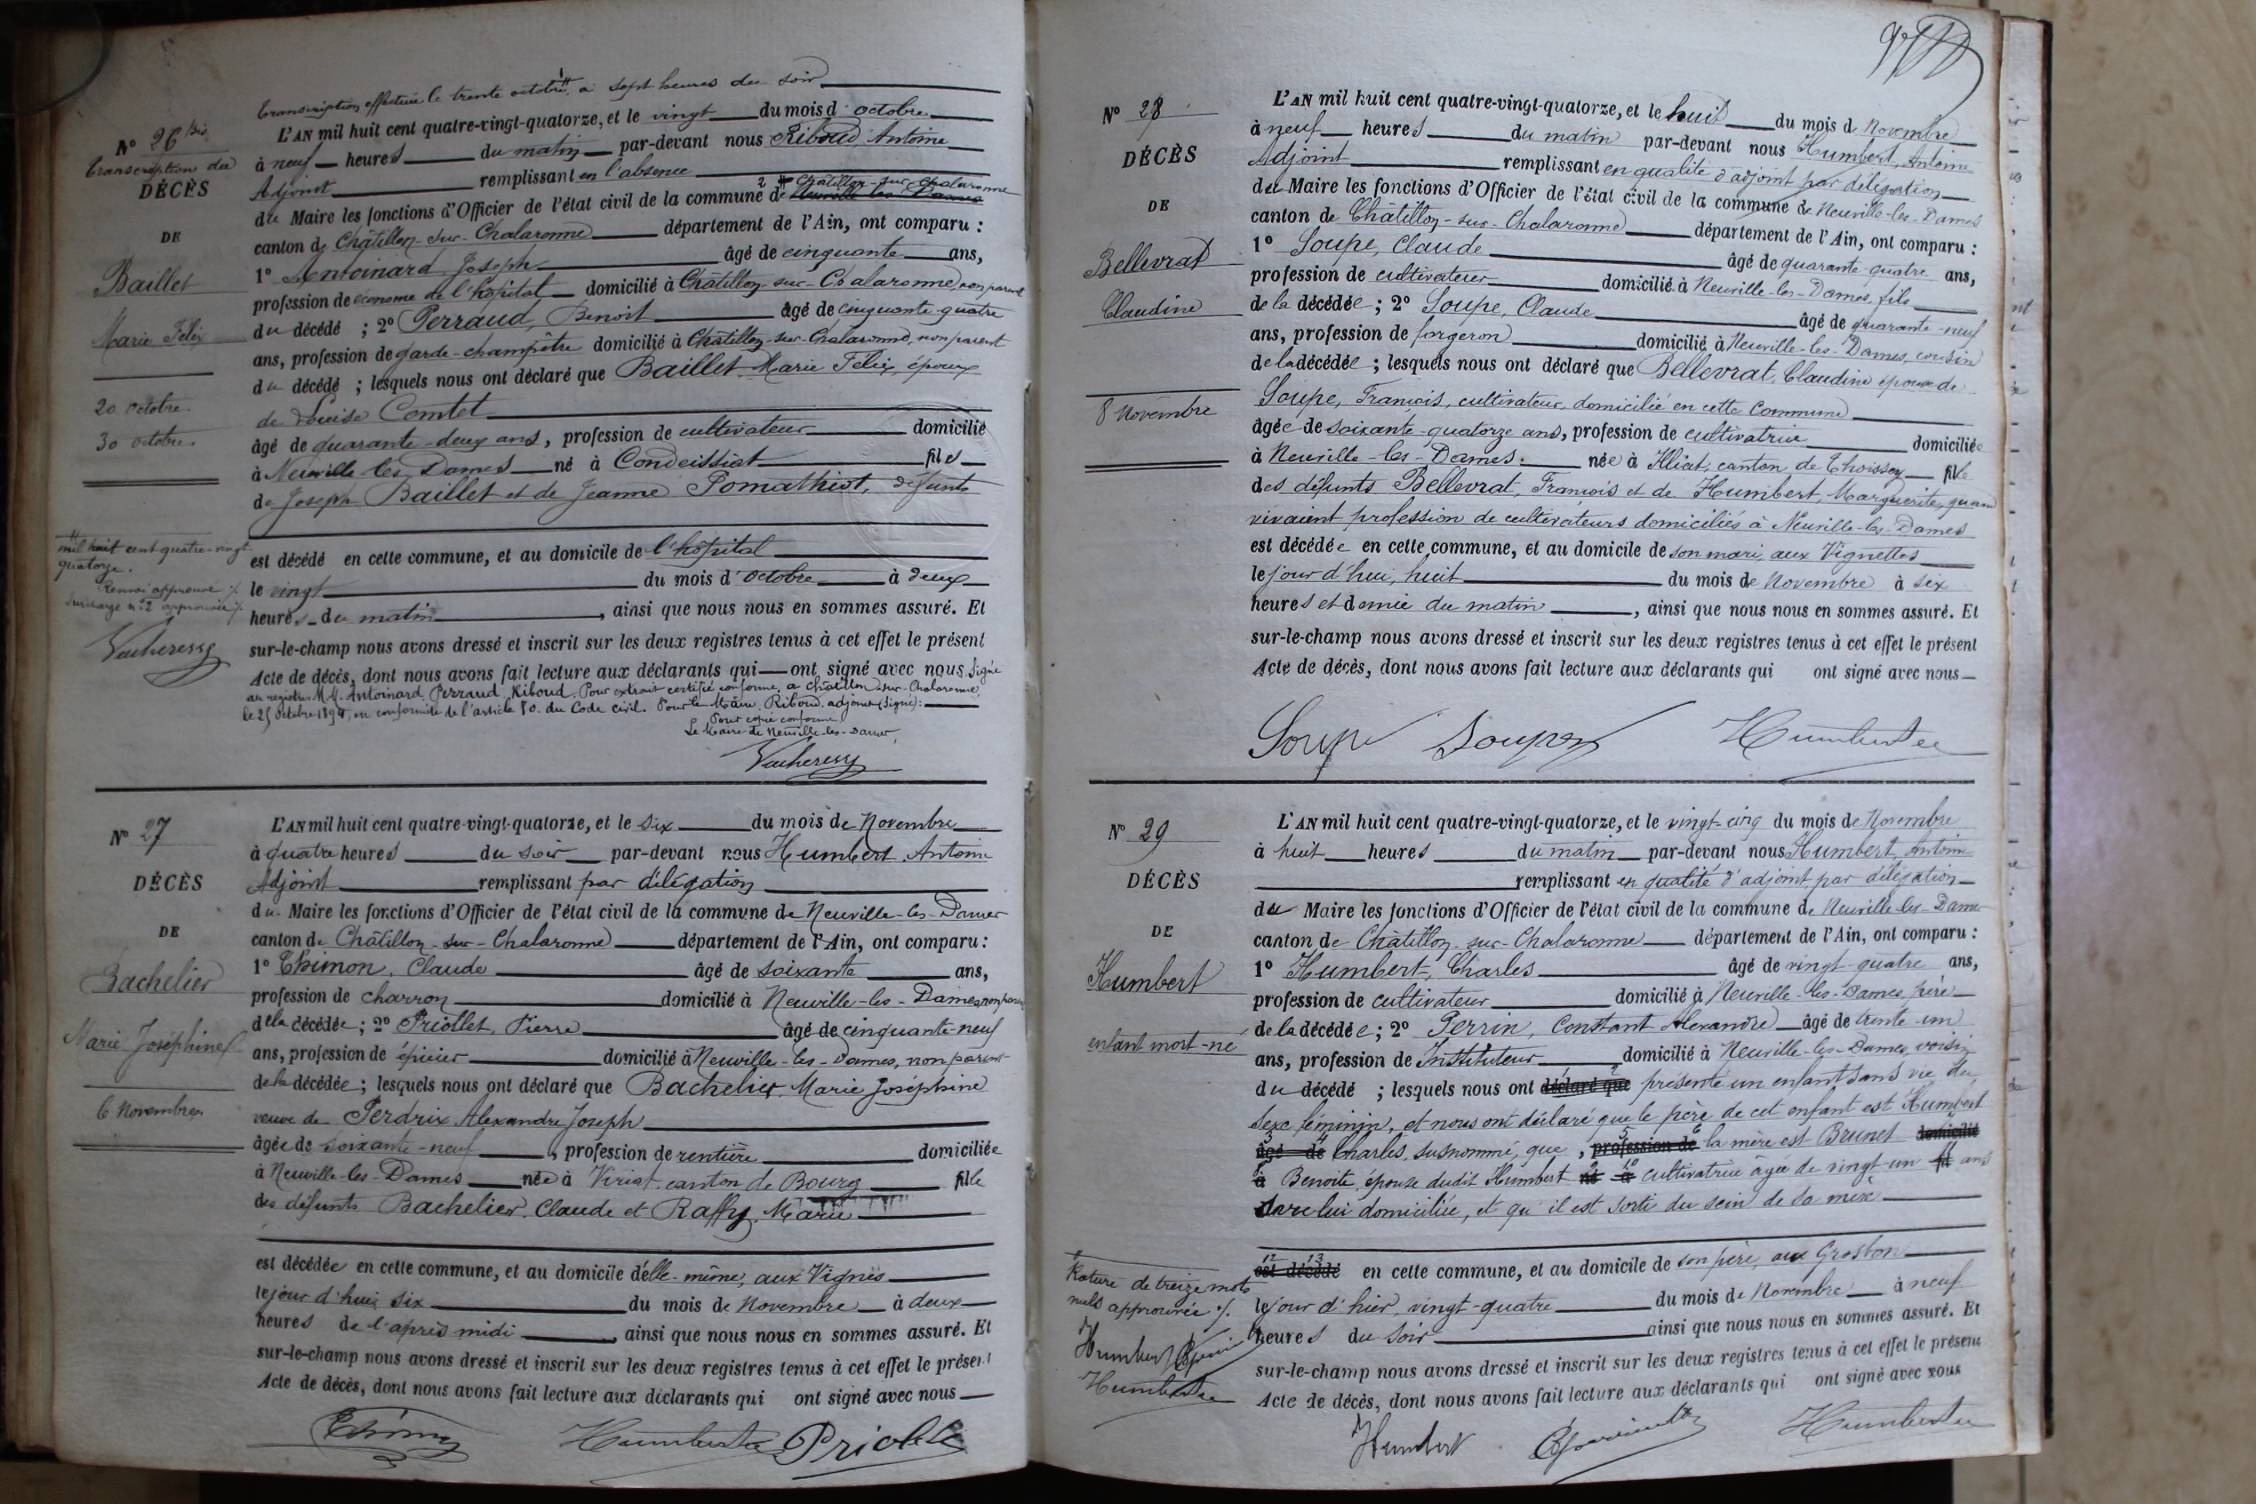 Transcription effectuée le trente octobre, à sept heures du soir
N° 26 bis
Transcription du
DÉCÈS
DE
Baillet
Marie Félix
20 octobre.
30 octobre.
L'AN mil huit cent quatre-vingt-quatorze, et le vingt du mois d'octobre
à neuf heures du matin par-devant nous Riboud, Antoine
Adjoint remplissant en l'absence
du Maire les fonctions d'Officier de l'état civil de la commune de Châtillon-sur-Chalaronne
canton de Châtillon-sur-Chalaronne département de l'Ain, ont comparu :
1° Antoinard, Joseph âgé de cinquante ans,
profession de économe de l'hôpital domicilié à Châtillon-sur-Chalaronne, non parent
du décédé ; 2° Perraud, Benoit âgé de cinquante-quatre
ans, profession de garde-champêtre domicilié à Châtillon-sur-Chalaronne, non parent
du décédé ; lesquels nous ont déclaré que Baillet, Marie Félix, époux
de Louise Comtet
âgé de quarante-deux ans, profession de cultivateur domicilié
à Neuville-les-Dames né à Condeissiat fils
de Joseph Baillet et de Jeanne Pomathiot, défunts
est décédé en cette commune, et au domicile de l'hôpital
le vingt du mois d'octobre à deux
heures du matin, ainsi que nous nous en sommes assuré. Et
sur-le-champ nous avons dressé et inscrit sur les deux registres tenus à cet effet le présent
Acte de décès, dont nous avons fait lecture aux déclarants qui ont signé avec nous. Signé
au registre M.M. Antoinard, Perraud, Riboud. Pour extrait certifié conforme, à Châtillon-sur-Chalaronne,
le 25 octobre 1894, en conformité de l'article 80 du Code civil. Pour le Maire, Riboud, adjoint (signé):
Pour copie conforme
Le Maire de Neuville-les-Dames,
Vacheresse
mil huit cent quatre-vingt-
quatorze.
Renvoi approuvé ./.
Surcharge n° 2 approuvée ./.
Vacheresse
N° 27
DÉCÈS
DE
Bachelier
Marie Joséphine
6 Novembre
L'AN mil huit cent quatre-vingt-quatorze, et le six du mois de Novembre
à quatre heures du soir par-devant nous Humbert, Antoine
Adjoint remplissant par délégation
du Maire les fonctions d'Officier de l'état civil de la commune de Neuville-les-Dames
canton de Châtillon-sur-Chalaronne département de l'Ain, ont comparu :
1° Thimon, Claude âgé de soixante ans,
profession de charron domicilié à Neuville-les-Dames, non parent
de la décédée ; 2° Priollet, Pierre âgé de cinquante-neuf
ans, profession de épicier domicilié à Neuville-les-Dames, non parent
de la décédée ; lesquels nous ont déclaré que Bachelier, Marie Joséphine
veuve de Perdrix Alexandre Joseph
âgée de soixante-neuf, profession de rentière domiciliée
à Neuville-les-Dames née à Viriat canton de Bourg fille
des défunts Bachelier, Claude et Raffy, Marie
est décédée en cette commune, et au domicile d'elle-même, aux Vignes
le jour d'hui, six du mois de Novembre à deux
heures de l'après midi, ainsi que nous nous en sommes assuré. Et
sur-le-champ nous avons dressé et inscrit sur les deux registres tenus à cet effet le présent
Acte de décès, dont nous avons fait lecture aux déclarants qui ont signé avec nous
Thimon Humbert Priollet
N° 28
DÉCÈS
DE
Bellevrat
Claudine
8 Novembre
L'AN mil huit cent quatre-vingt-quatorze, et le huit du mois de Novembre
à neuf heures du matin par-devant nous Humbert, Antoine
Adjoint remplissant en qualité d'adjoint par délégation
du Maire les fonctions d'Officier de l'état civil de la commune de Neuville-les-Dames
canton de Châtillon-sur-Chalaronne département de l'Ain, ont comparu :
1° Soupe, Claude âgé de quarante-quatre ans,
profession de cultivateur domicilié à Neuville-les-Dames, fils
de la décédée ; 2° Soupe, Claude âgé de quarante-neuf
ans, profession de forgeron domicilié à Neuville-les-Dames, cousin
de la décédée ; lesquels nous ont déclaré que Bellevrat, Claudine épouse de
Soupe, François, cultivateur, domicilié en cette Commune
âgée de soixante-quatorze ans, profession de cultivatrice domiciliée
à Neuville-les-Dames. née à Illiat, canton de Thoissey fille
des défunts Bellevrat, François et de Humbert, Marguerite, quan
vivaient profession de cultivateurs domiciliés à Neuville-les-Dames
est décédée en cette commune, et au domicile de son mari, aux Vignettes
le jour d'hui, huit du mois de Novembre à six
heures et demie du matin, ainsi que nous nous en sommes assuré. Et
sur-le-champ nous avons dressé et inscrit sur les deux registres tenus à cet effet le présent
Acte de décès, dont nous avons fait lecture aux déclarants qui ont signé avec nous
Soupe Soupe Humbert
N° 29
DÉCÈS
DE
Humbert
enfant mort-né
L'AN mil huit cent quatre-vingt-quatorze, et le vingt-cinq du mois de Novembre
à huit heures du matin par-devant nous Humbert, Antoine
remplissant en qualité d'adjoint par délégation
du Maire les fonctions d'Officier de l'état civil de la commune de Neuville-les-Dames
canton de Châtillon-sur-Chalaronne département de l'Ain, ont comparu :
1° Humbert, Charles âgé de vingt-quatre ans,
profession de cultivateur domicilié à Neuville-les-Dames, père
de la décédée ; 2° Perrin, Constant Alexandre âgé de trente-un
ans, profession de Instituteur domicilié à Neuville-les-Dames, voisin
du décédé ; lesquels nous ont déclaré que présenté un enfant sans vie du
sexe féminin, et nous ont déclaré que le père de cet enfant est Humbert
âgé de Charles, susnommé, que, profession de la mère est Brunet domicilié
à Benoite, épouse dudit Humbert né à cultivatrice âgée de vingt-un fil ans
avec lui domiciliée, et qu'il est sorti du sein de sa mère
est décédé en cette commune, et au domicile de son père, aux Grosbon
le jour d'hier, vingt-quatre du mois de Novembre à neuf
heures du soir ainsi que nous nous en sommes assuré. Et
sur-le-champ nous avons dressé et inscrit sur les deux registres tenus à cet effet le présent
Acte de décès, dont nous avons fait lecture aux déclarants qui ont signé avec nous
Rature de treize mots
nuls approuvée ./.
Humbert
Humbert
Humbert Humbert